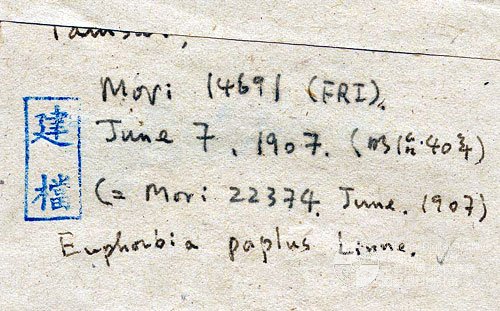 Tamsui,
Mori 14691 (FRI).
June 7, 1907. (明治40年)
建檔
(= Mori 22374, June. 1907)
Euphorbia paplus Linne.